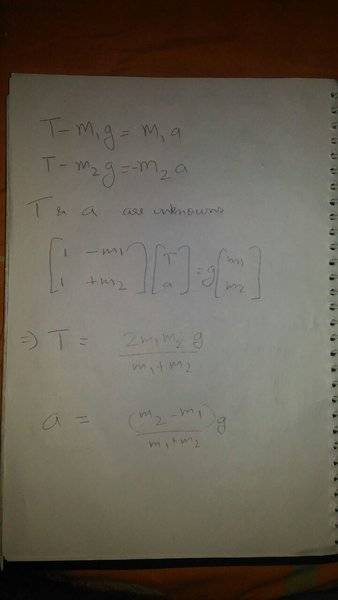 T - m₁g = m₁a
T - m₂g = -m₂a
T & a are unknowns
[1 -m₁; 1 +m₂] [T; a] = g [m₁; m₂]
⇒ T = 2m₁m₂g / (m₁+m₂)
a = (m₂-m₁)g / (m₁+m₂)